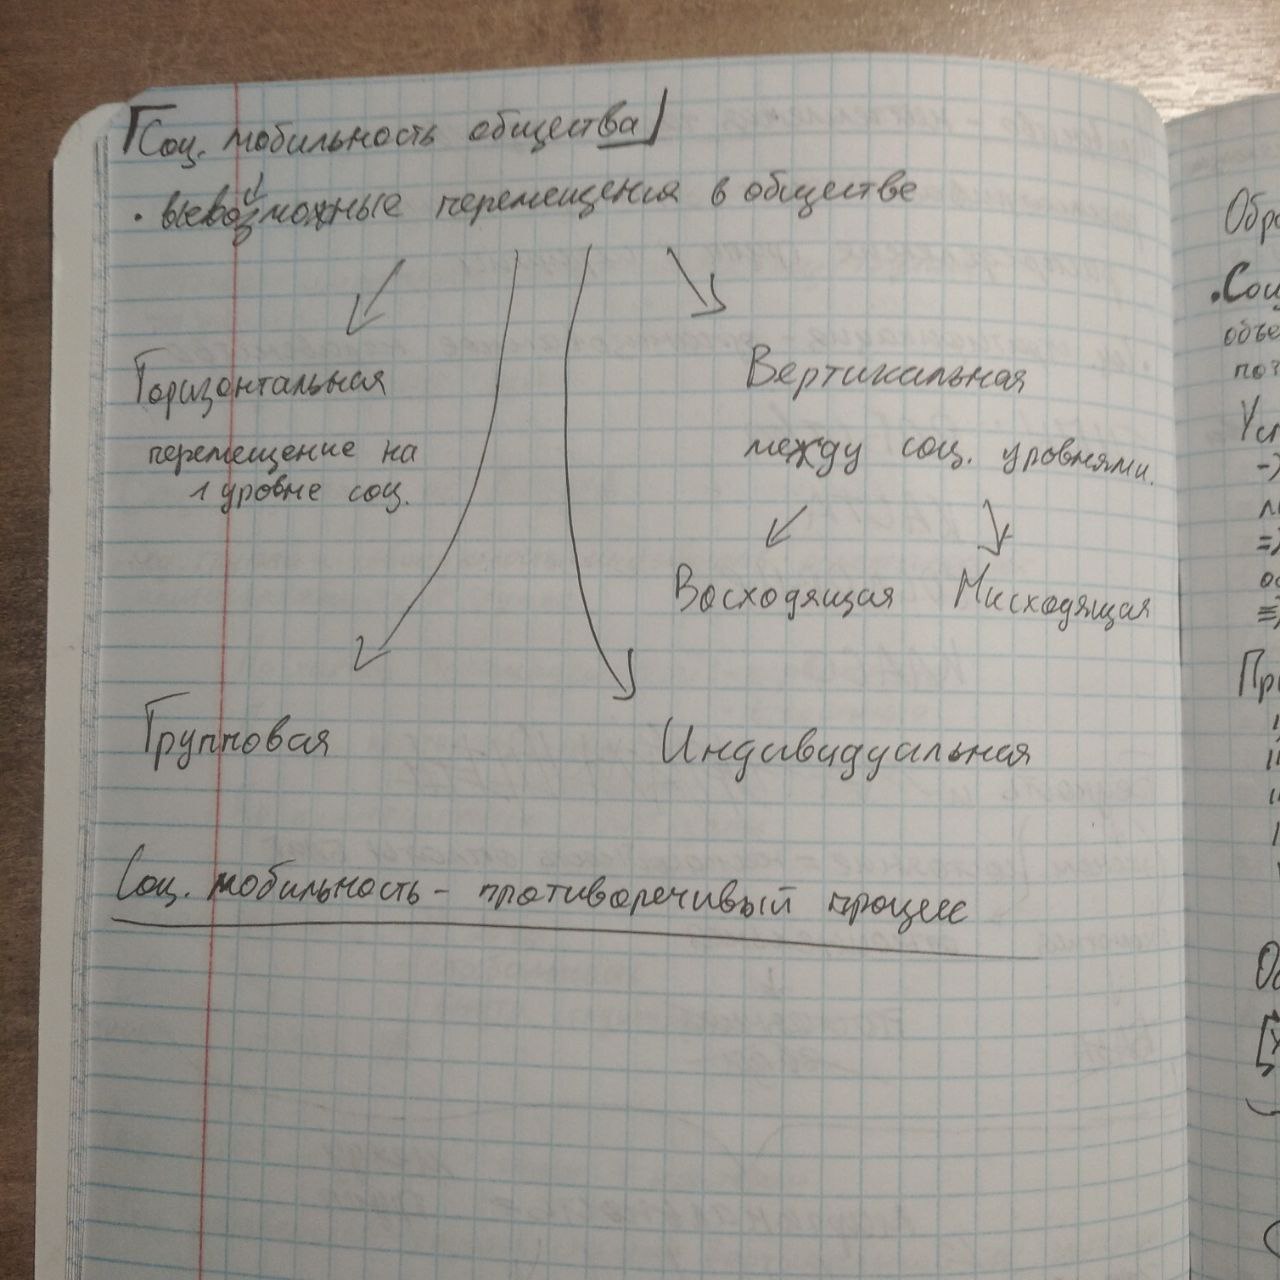 Соц. мобильность общества
• всевозможные перемещения в обществе
Горизонтальная
перемещение на
1 уровне соц.
Вертикальная
между соц. уровнями.
Восходящая Нисходящая
Групповая
Индивидуальная
Соц. мобильность - противоречивый процесс
Обра
• Соц
объе
поз
Усл
Пр